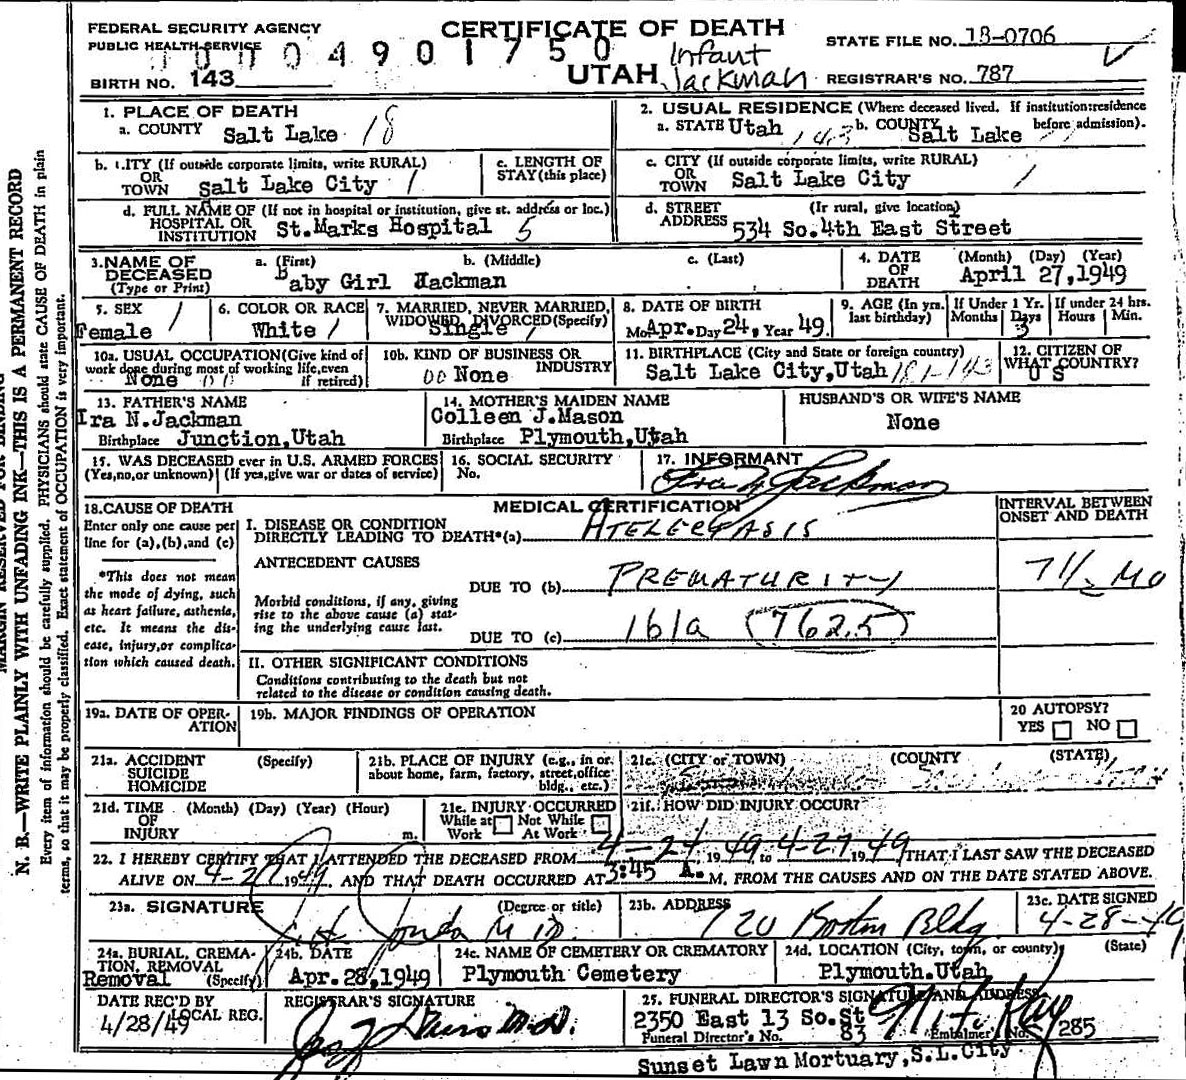 FEDERAL SECURITY AGENCY
PUBLIC HEALTH SERVICE
CERTIFICATE OF DEATH
STATE FILE NO. 18-0706
04901750
Infant
Jackman
UTAH
BIRTH NO. 143
REGISTRAR'S NO. 787
1. PLACE OF DEATH
a. COUNTY Salt Lake 18
2. USUAL RESIDENCE (Where deceased lived. If institution: residence before admission).
a. STATE Utah 143 b. COUNTY Salt Lake
b. CITY (If outside corporate limits, write RURAL)
OR
TOWN Salt Lake City 1
c. LENGTH OF
STAY (this place)
c. CITY (If outside corporate limits, write RURAL)
OR
TOWN Salt Lake City 1
d. FULL NAME OF (If not in hospital or institution, give st. address or loc.)
HOSPITAL OR
INSTITUTION St.Marks Hospital 5
d. STREET (If rural, give location)
ADDRESS 534 So.4th East Street
3. NAME OF
DECEASED
(Type or Print)
a. (First) b. (Middle) c. (Last)
Baby Girl Jackman
4. DATE
OF
DEATH
(Month) (Day) (Year)
April 27,1949
5. SEX 1
Female
6. COLOR OR RACE
White 1
7. MARRIED, NEVER MARRIED,
WIDOWED, DIVORCED (Specify)
Single 1
8. DATE OF BIRTH
Mo. Apr. Day 24, Year 49.
9. AGE (In yrs.
last birthday)
If Under 1 Yr.
Months Days
3
If under 24 hrs.
Hours Min.
10a. USUAL OCCUPATION (Give kind of
work done during most of working life, even
if retired)
None 00
10b. KIND OF BUSINESS OR
INDUSTRY
00 None
11. BIRTHPLACE (City and State or foreign country)
Salt Lake City,Utah 181-143
12. CITIZEN OF
WHAT COUNTRY?
U S
13. FATHER'S NAME
Ira N.Jackman
Birthplace Junction,Utah
14. MOTHER'S MAIDEN NAME
Colleen J.Mason
Birthplace Plymouth,Utah
HUSBAND'S OR WIFE'S NAME
None
15. WAS DECEASED ever in U.S. ARMED FORCES
(Yes, no, or unknown) (If yes, give war or dates of service)
16. SOCIAL SECURITY
No.
17. INFORMANT
Ira N. Jackman
18. CAUSE OF DEATH
Enter only one cause per
line for (a), (b), and (c)
*This does not mean
the mode of dying, such
as heart failure, asthenia,
etc. It means the dis-
ease, injury, or complica-
tion which caused death.
MEDICAL CERTIFICATION
INTERVAL BETWEEN
ONSET AND DEATH
I. DISEASE OR CONDITION
DIRECTLY LEADING TO DEATH*(a) ATELECTASIS
ANTECEDENT CAUSES
DUE TO (b) PREMATURITY 7 1/2 Mo
Morbid conditions, if any, giving
rise to the above cause (a) stat-
ing the underlying cause last.
DUE TO (c) 161a 762.5
II. OTHER SIGNIFICANT CONDITIONS
Conditions contributing to the death but not
related to the disease or condition causing death.
19a. DATE OF OPER-
ATION
19b. MAJOR FINDINGS OF OPERATION
20 AUTOPSY?
YES NO
21a. ACCIDENT (Specify)
SUICIDE
HOMICIDE
21b. PLACE OF INJURY (e.g., in or
about home, farm, factory, street, office
bldg., etc.)
21c. (CITY or TOWN) (COUNTY (STATE)
21d. TIME (Month) (Day) (Year) (Hour)
OF
INJURY m.
21e. INJURY OCCURRED
While at Not While
Work At Work
21f. HOW DID INJURY OCCUR?
22. I HEREBY CERTIFY THAT I ATTENDED THE DECEASED FROM 4-24 1949 to 4-27 1949, THAT I LAST SAW THE DECEASED
ALIVE ON 4-27 1949 AND THAT DEATH OCCURRED AT 3:45 A. M. FROM THE CAUSES AND ON THE DATE STATED ABOVE.
23a. SIGNATURE (Degree or title)
M D.
23b. ADDRESS
720 Boston Bldg
23c. DATE SIGNED
4-28-49
24a. BURIAL, CREMA-
TION, REMOVAL
Removal (Specify)
24b. DATE
Apr. 28,1949
24c. NAME OF CEMETERY OR CREMATORY
Plymouth Cemetery
24d. LOCATION (City, town, or county) (State)
Plymouth.Utah
DATE REC'D BY
LOCAL REG.
4/28/49
REGISTRAR'S SIGNATURE
M.D.
25. FUNERAL DIRECTOR'S SIGNATURE AND ADDRESS
2350 East 13 So.St
Funeral Director's No. 83 Embalmer's No. 285
Sunset Lawn Mortuary,S.L.City
MARGIN RESERVED FOR BINDING
N. B.—WRITE PLAINLY WITH UNFADING INK—THIS IS A PERMANENT RECORD
Every item of information should be carefully supplied. PHYSICIANS should state CAUSE OF DEATH in plain
terms, so that it may be properly classified. Exact statement of OCCUPATION is very important.